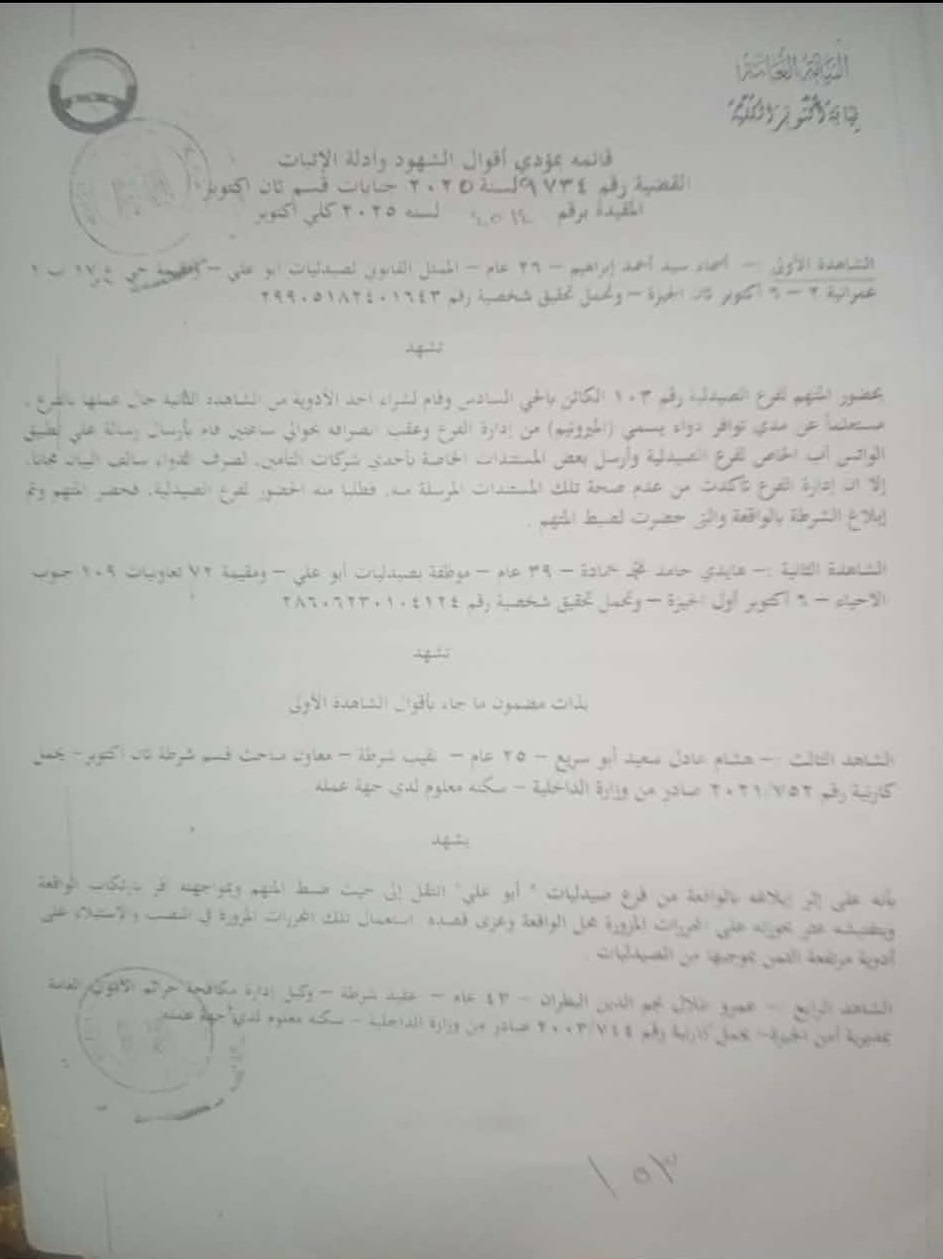 النيابة العامة
نيابة أكتوبر الكلية
قائمه بمؤدي أقوال الشهود وأدلة الإثبات
القضية رقم ٩٧٣٤ لسنة ٢٠٢٥ جنايات قسم ثان اكتوبر
المقيدة برقم لسنه ٢٠٢٥ كلي أكتوبر
الشاهدة الأولى :- أسماء سيد أحمد إبراهيم – ٢٦ عام – الممثل القانوني لصيدليات ابو علي – ومقيمة حي
عمرانية ٢ – ٦ اكتوبر ثان الجيزة – وتحمل تحقيق شخصية رقم ٢٩٩٠٥١٨٢٤٠١٦٤٣
تشهد
بحضور المتهم لفرع الصيدلية رقم ١٠٣ الكائن بالحي السادس وقام لشراء احد الأدوية من الشاهدة الثانية حال عملها بالفرع ،
مستعلماً عن مدي توافر دواء يسمي (الميرونيم) من إدارة الفرع وعقب انصرافه بحوالي ساعتين قام بأرسال رسالة علي تطبيق
الواتس أب الخاص لفرع الصيدلية وأرسل بعض المستندات الخاصة بأحدي شركات التأمين، لصرف الدواء سالف البيان مجاناً،
إلا ان إدارة الفرع تأكدت من عدم صحة تلك المستندات المرسلة منه، فطلبا منه الحضور لفرع الصيدلية، فحضر المتهم وتم
إبلاغ الشرطة بالواقعة والتي حضرت لضبط المتهم .
الشاهدة الثانية :- هايدي حامد محمد حمادة – ٣٩ عام – موظفة بصيدليات أبو علي – ومقيمة ٧٢ تعاونيات ١٠٩ جنوب
الاحياء – ٦ اكتوبر أول الجيزة – وتحمل تحقيق شخصية رقم ٢٨٦٠٦٢٣٠١٠٤١٢٤
تشهد
بذات مضمون ما جاء بأقوال الشاهدة الأولى
الشاهد الثالث :- هشام عادل سعيد أبو سريع – ٢٥ عام – نقيب شرطة – معاون مباحث قسم شرطة ثان اكتوبر – يحمل
كارنية رقم ٢٠٢١/٧٥٢ صادر من وزارة الداخلية – سكنه معلوم لدي جهة عمله
يشهد
بأنه على إثر إبلاغه بالواقعة من فرع صيدليات " أبو علي" انتقل إلى حيث ضبط المتهم وبمواجهته اقر بارتكاب الواقعة
وبتفتيشه عثر بحوزته على المحررات المزورة محل الواقعة وعزى قصده استعمال تلك المحررات المزورة في النصب والاستيلاء على
أدوية مرتفعة الثمن بموجبها من الصيدليات .
الشاهد الرابع :- عمرو طلال نجم الدين البطران – ٤٣ عام – عقيد شرطة – وكيل إدارة مكافحة جرائم الأموال العامة
بمديرية أمن الجيزة – يحمل كارنية رقم ٢٠٠٣/٧٤٤ صادر من وزارة الداخلية – سكنه معلوم لدي جهة عمله
١٥٣